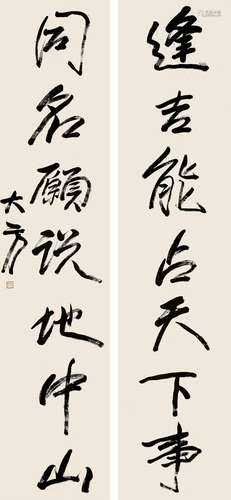 缝吉能占天下事
同名愿说地中山
大方